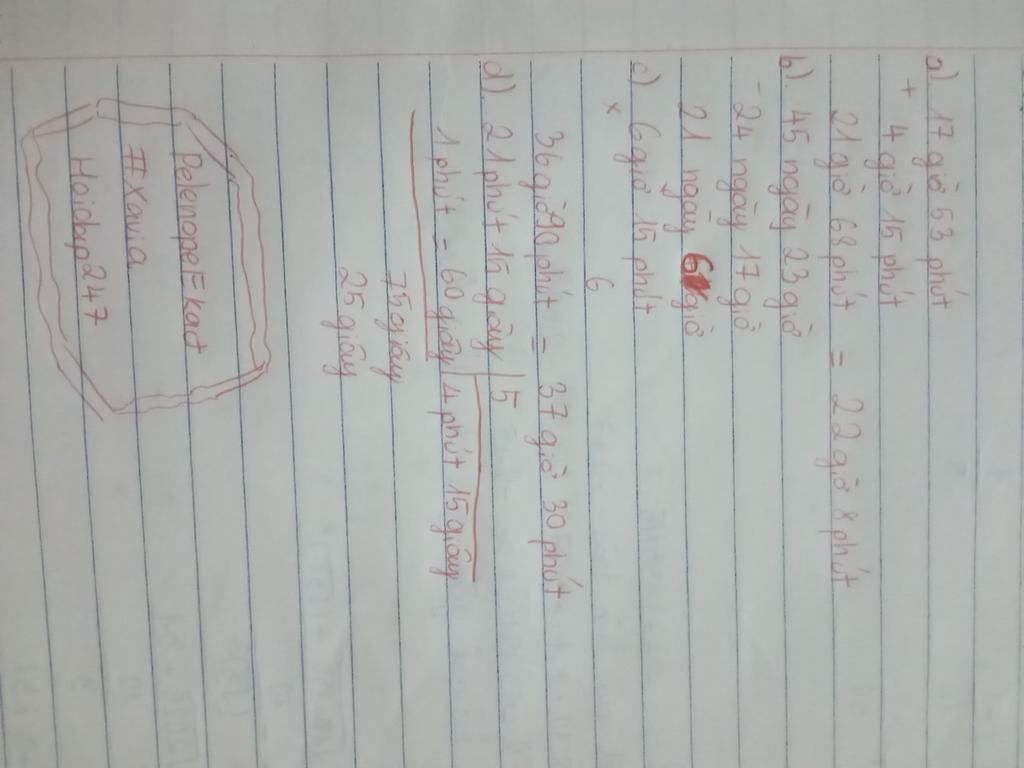 a) 17 giờ 53 phút
+ 4 giờ 15 phút
21 giờ 68 phút = 22 giờ 8 phút
b). 45 ngày 23 giờ
- 24 ngày 17 giờ
21 ngày 6 giờ
c) 6 giờ 15 phút
x
6
36 giờ 90 phút = 37 giờ 30 phút
d). 21 phút 15 giây | 5
1 phút = 60 giây | 4 phút 15 giây
75 giây
25 giây
PelenopeEkat
#Xavia
Hoidap247